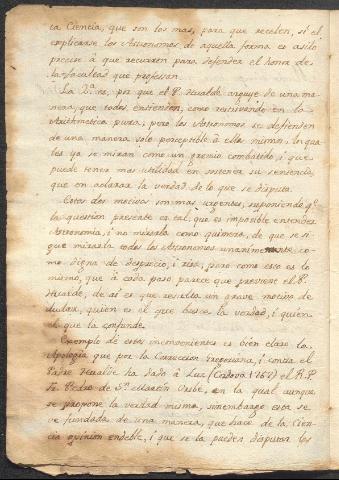 ta Ciencia, que son los mas, para que recelen, si el
explicarse los Astronomos de aquella forma es asilo
preciso à que recurren para defender el honor de
la facultad que professan.
La 2ª es, por que el P. Ituralde arguye de una ma-
nera, que todos entienden, como restituirando en la
Arithmetica pura, pero los Astronomos se defienden
de una manera solo perceptible à ellos mismos, lo qual
les ya se miran como un gremio combatido, i que
puede tener mas utilidad en sostener su sentencia,
que en aclarar la verdad de lo que se disputa.
Estos dos motivos son mas urgentes, suponiendo qᵉ
la question presente es tal, que es imposible entender
Astronomia, i no mirarla como quimera, de que se si-
gue mirarla todos los Astronomos unanimemente co-
mo digna de desprecio, i risa, pero como esto es lo
mismo, que à cada paso parece que previene el P.
Ituralde, de ai es que resulta un grave motivo de
dudar, quien es el que busca la verdad, i quien
el que la confunde.
Exemplo de estos inconvenientes es bien claro la
Apologia que por la Correccion Gregoriana, i contra el
Padre Ituralde ha dado à Luz (Cordova 1757) el R. P.
Fr. Pedro de Sⁿ Martin Uribe, en la qual aunque
se propone la verdad misma, sinembargo esta se
ve fundada de una manera, que hace de la Cien-
cia opinion endeble, i que se la pueden disputar los